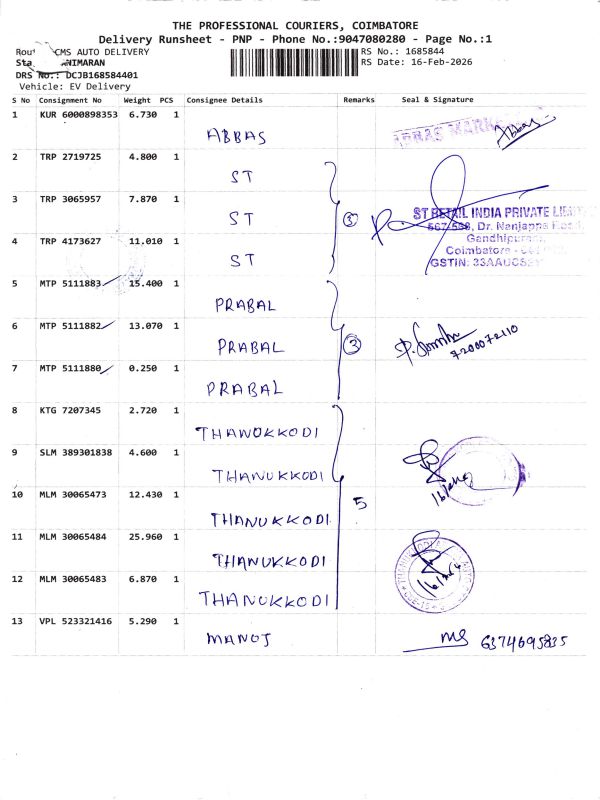 THE PROFESSIONAL COURIERS, COIMBATORE
Delivery Runsheet - PNP - Phone No.:9047080280 - Page No.:1
CMS AUTO DELIVERY RS No.: 1685844
ANIMARAN RS Date: 16-Feb-2026
DRS No.: DCJB168584401
Vehicle: EV Delivery
S No Consignment No Weight PCS Consignee Details Remarks Seal & Signature
1 KUR 6000898353 6.730 1 ABBAS ABBAS Abbas
2 TRP 2719725 4.800 1 ST
3 TRP 3065957 7.870 1 ST 3 ST RETAIL INDIA PRIVATE
Dr. Nanjappa Road,
Gandhipuram
4 TRP 4173627 11.010 1 ST Coimbatore
GSTIN:
5 MTP 5111883 15.400 1 PRABAL
6 MTP 5111882 13.070 1 PRABAL 3 7200072110
7 MTP 5111880 0.250 1 PRABAL
8 KTG 7207345 2.720 1 THANUKKODI
9 SLM 389301838 4.600 1 THANUKKODI
10 MLM 30065473 12.430 1 THANUKKODI 5
11 MLM 30065484 25.960 1 THANUKKODI
12 MLM 30065483 6.870 1 THANUKKODI
13 VPL 523321416 5.290 1 MANOJ MS 6374695835